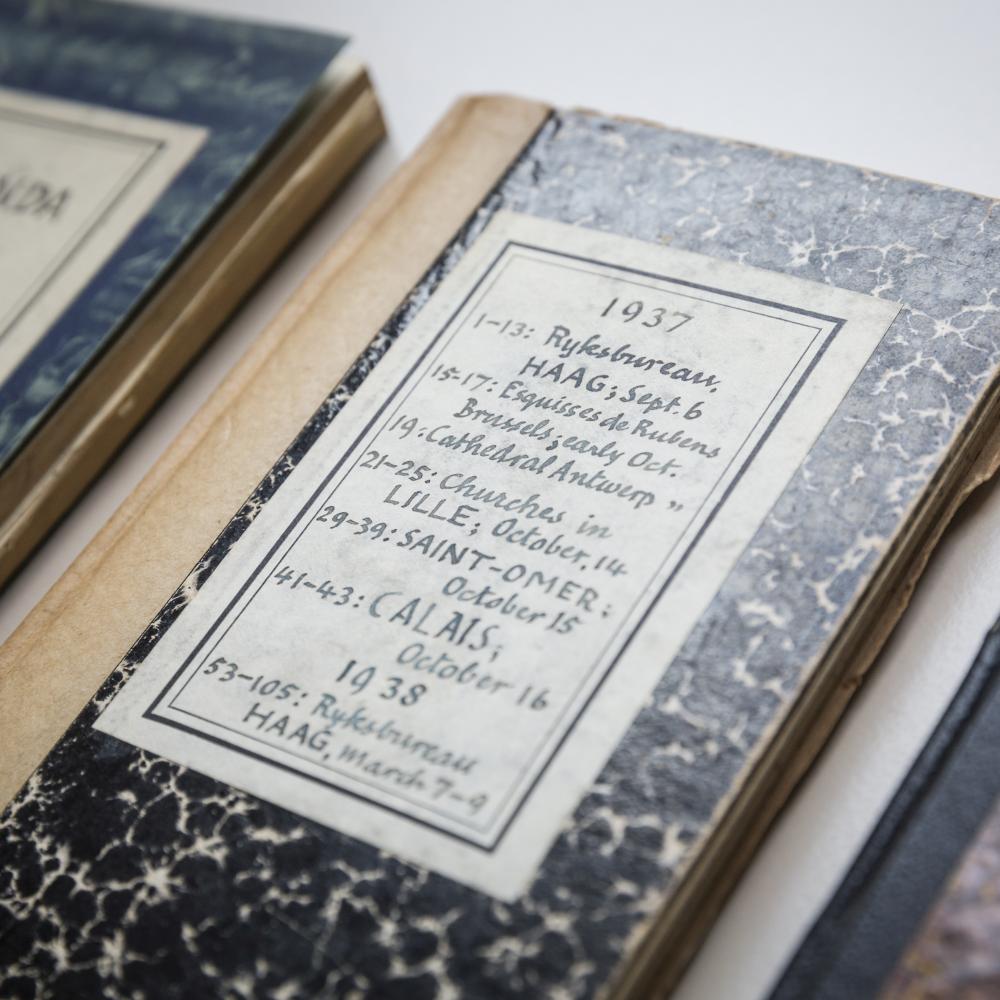 1937
1-13: Ryksbureau,
HAAG; Sept. 6
15-17: Esquisses de Rubens
Brussels; early Oct.
19: Cathedral Antwerp "
21-25: Churches in
LILLE; October, 14
29-39: SAINT-OMER:
October 15
41-43: CALAIS;
October 16
1938
53-105: Ryksbureau
HAAG, march 7-9